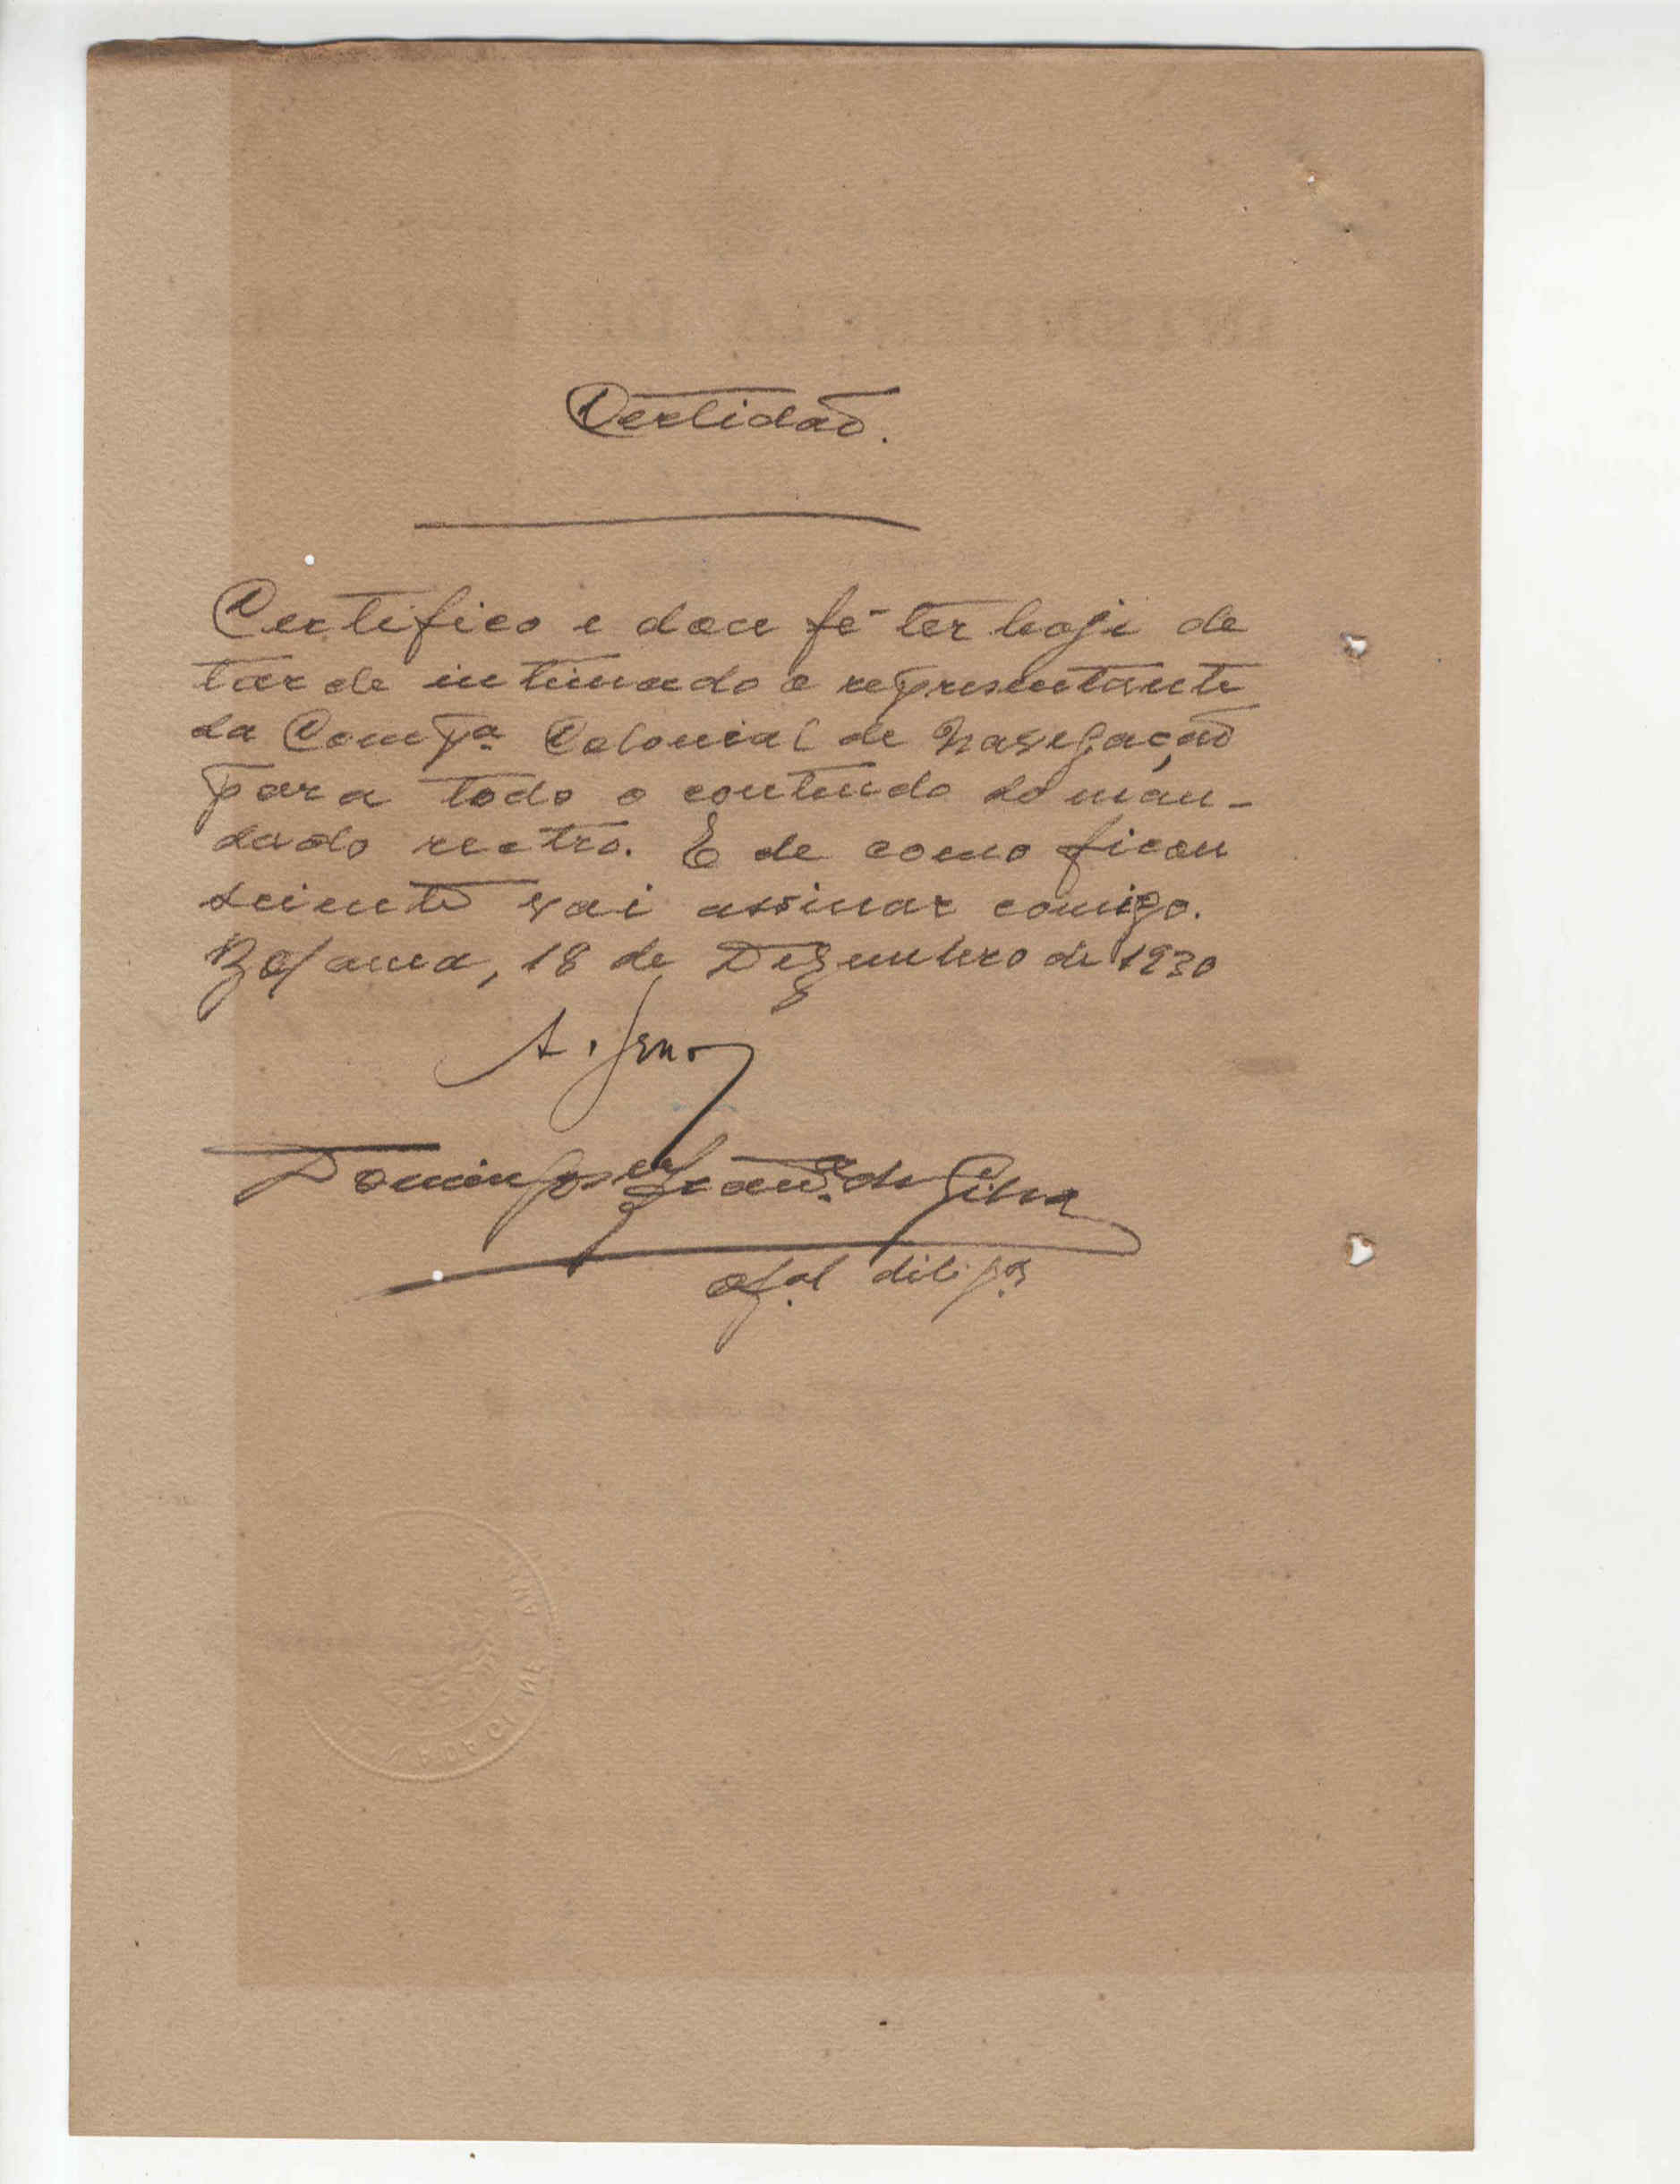 Certidão.
Certifico e dou fé ter hoje de
tarde intimado o representante
da Comp.ª Colonial de Navegação
para todo o contendo do man-
dado rectro. E de como ficou
sciente vai assinar comigo.
Bolama, 18 de Dezembro de 1930
A.
Domingos da Silva
of.al dilig.as